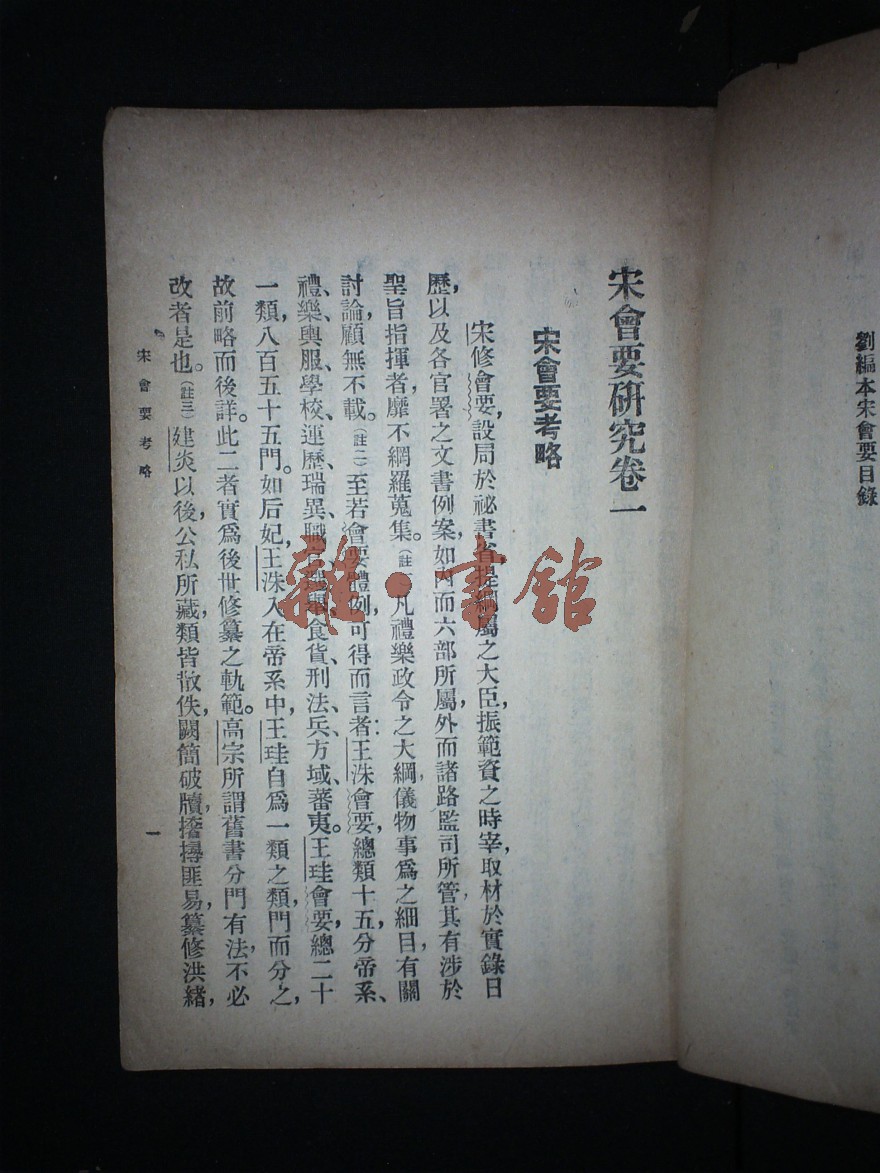 劉編本宋會要目錄
宋會要研究卷一
宋會要考略
宋修會要，設局於祕書省，提綱屬之大臣，振範資之時宰，取材於實錄日
歷，以及各官署之文書例案，如內而六部所屬，外而諸路監司所管，其有涉於
聖旨指揮者，靡不網羅蒐集。（註一）凡禮樂政令之大綱，儀物事爲之細目，有關
討論，顧無不載。（註二）至若會要體例，可得而言者：王洙會要，總類十五，分帝系、
禮、樂、輿服、學校、運歷、瑞異、職官、選舉、食貨、刑法、兵、方域、蕃夷。王珪會要，總二十
一類，八百五十五門。如后妃，王洙入在帝系中，王珪自爲一類之類，門而分之，
故前略而後詳。此二者實爲後世修纂之軌範。高宗所謂舊書分門有法，不必
改者是也。（註三）建炎以後，公私所藏，類皆散佚，闕簡破牘，撏撦匪易，纂修洪緒，
宋會要考略
一
雜·書館